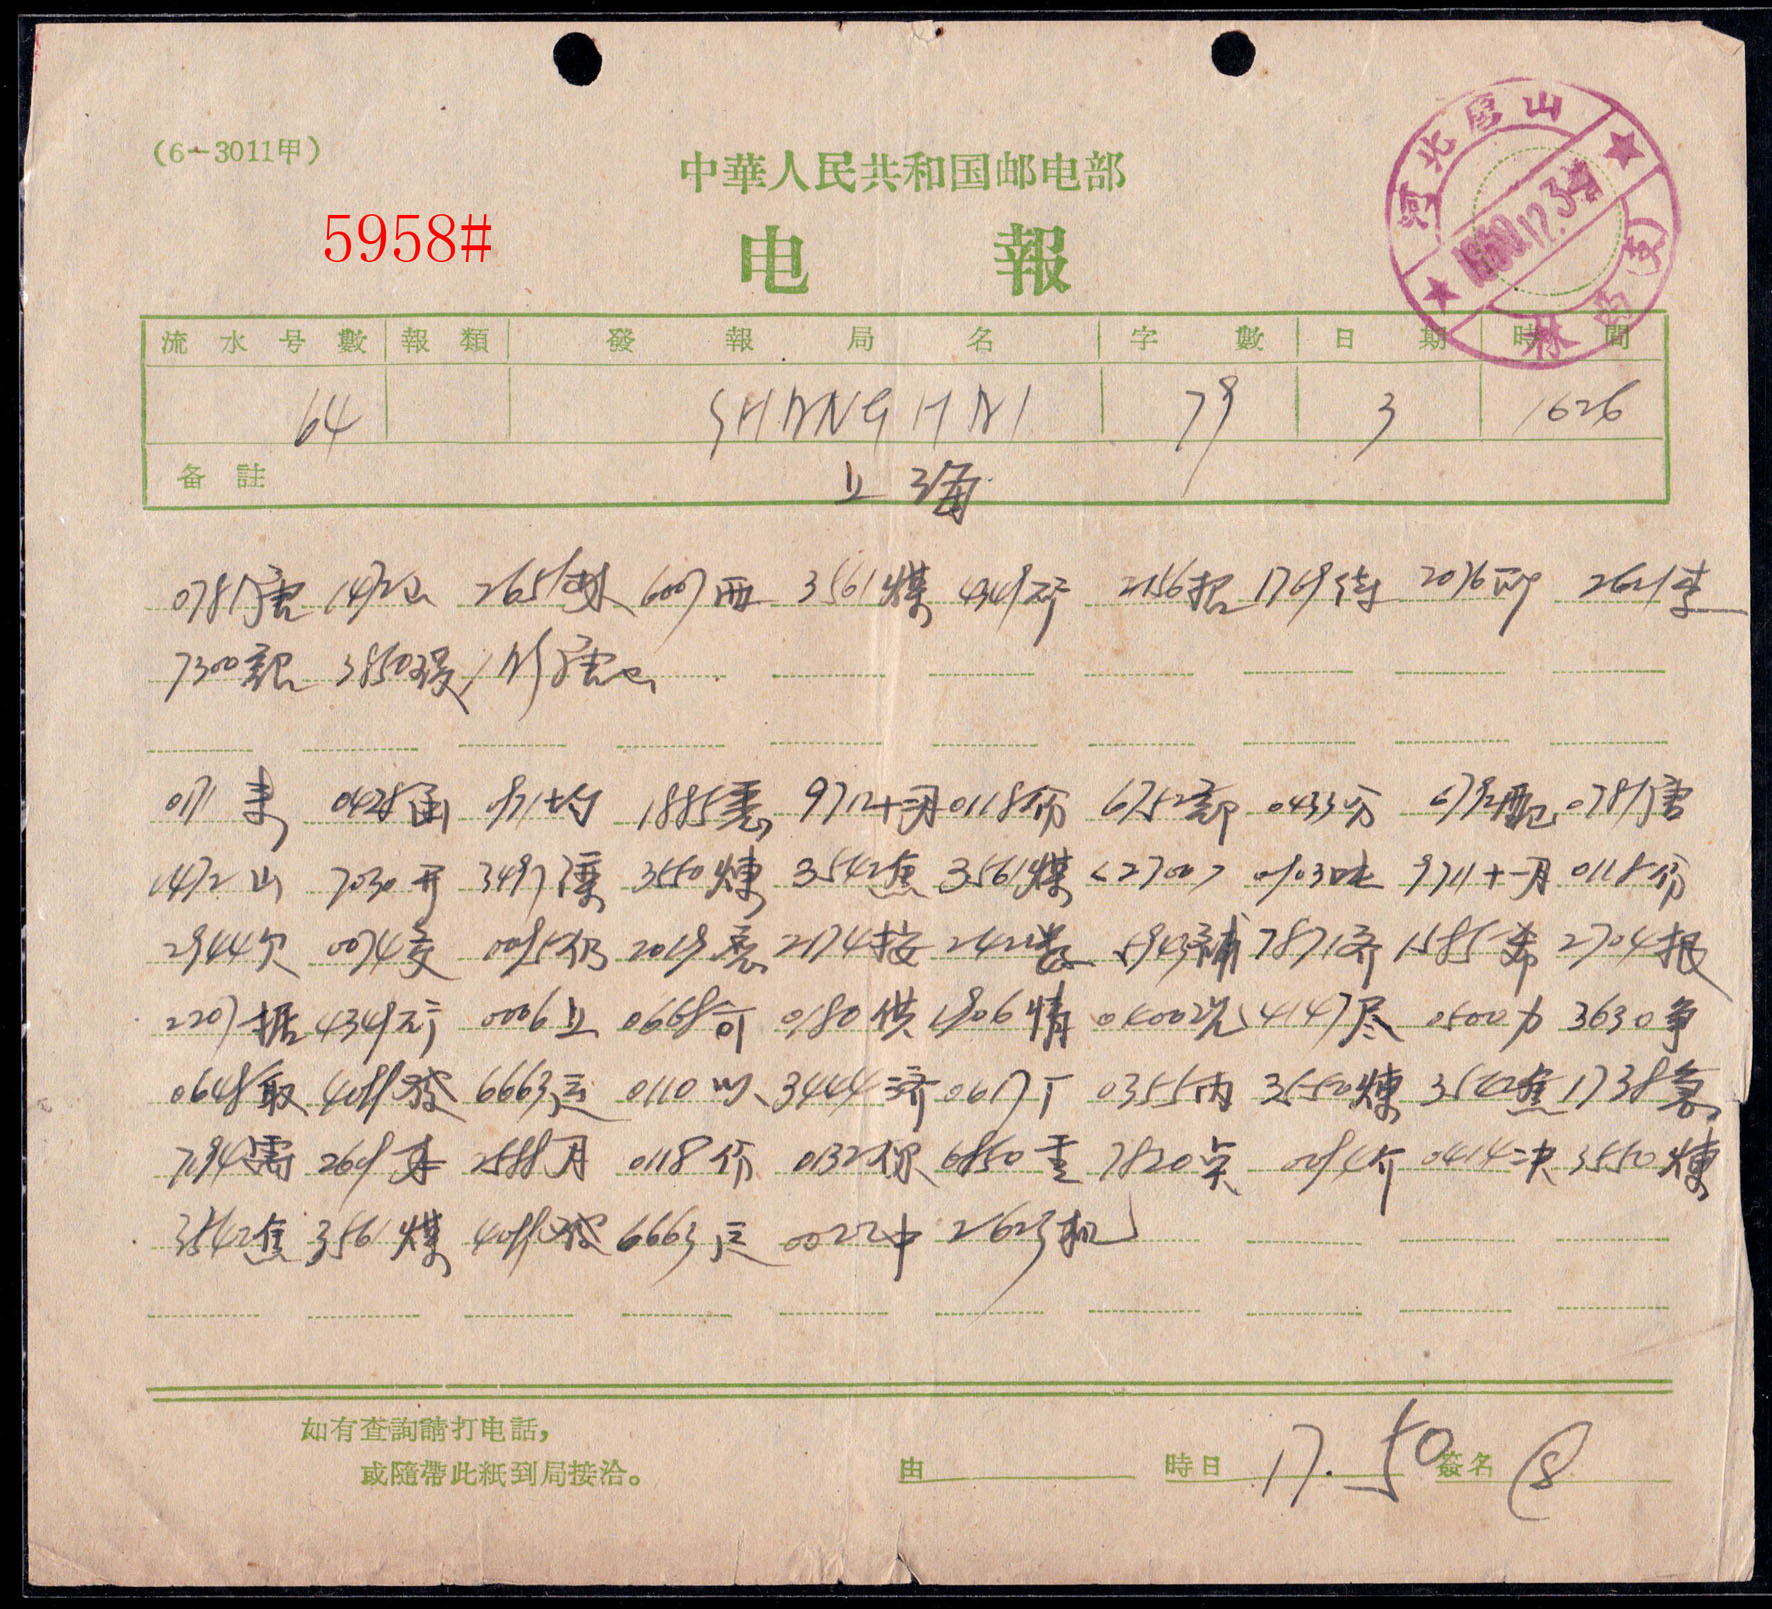 (6-3011甲)
中華人民共和国邮电部
5958#
电報
河北唐山
1960.12.3
林西(支)
流水号數 報類 發報局名 字數 日期 時間
64 SHANGHAI 79 3 1626
备註 上海
0781唐 1472山 2651林 6007西 3561煤 4349矿 2156招 1769待 2076所 2621李
7300 3850 唐山
0171 0428函 0971均 1885悉 9712十二月 0118份 6752部 0433分 6792配 0781唐
1472山 7030开 3497滦 3550煉 3542焦 3561煤 <2700> 0903吨 9711十一月 0118份
2944欠 0074交 0095仍 2019 2174按 2422 5943補 7871齐 1585希 2704
2207据 4349矿 0006上 0668可 0180供 1906情 0400况 4147尽 0500力 3630争
0648取 4099发 6663运 0110以 3444济 0617厂 0355内 3550煉 3542焦 1738急
7194需 2609 2588月 0118份 0132你 6850 7820 0094介 0414决 3550煉
3542焦 3561煤 4099发 6663运 0022中 2623机
如有查詢請打电話，
或隨帶此紙到局接洽。
由 時日 17.50 簽名